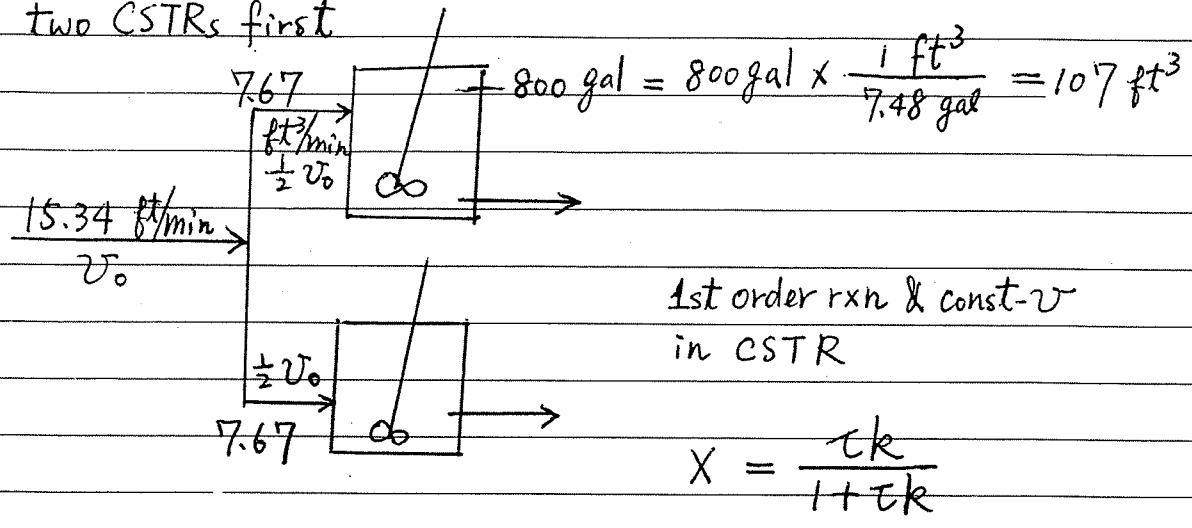 two CSTRs first
7.67
ft³/min
½ v₀
800 gal = 800 gal × 1 ft³ / 7.48 gal = 107 ft³
15.34 ft/min
v₀
1st order rxn & const-v
in CSTR
½ v₀
7.67
X = τk / 1 + τk